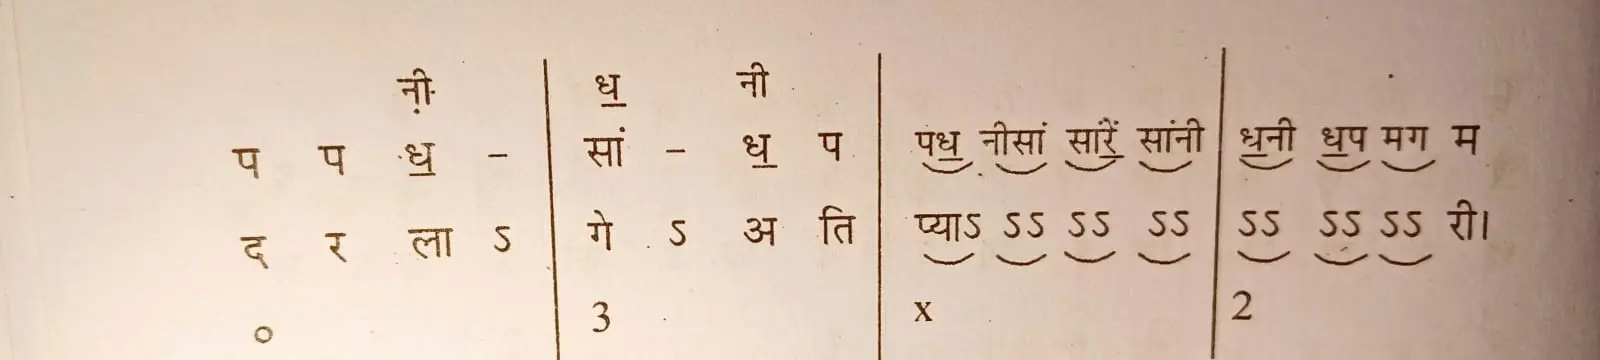 नी ध॒ नी
प प ध॒ – सां – ध॒ प पध॒ नीसां सांरे॒ं सांनी ध॒नी ध॒प मग म
द र ला ऽ गे ऽ अ ति प्याऽ ऽऽ ऽऽ ऽऽ ऽऽ ऽऽ ऽऽ री।
० 3 x 2